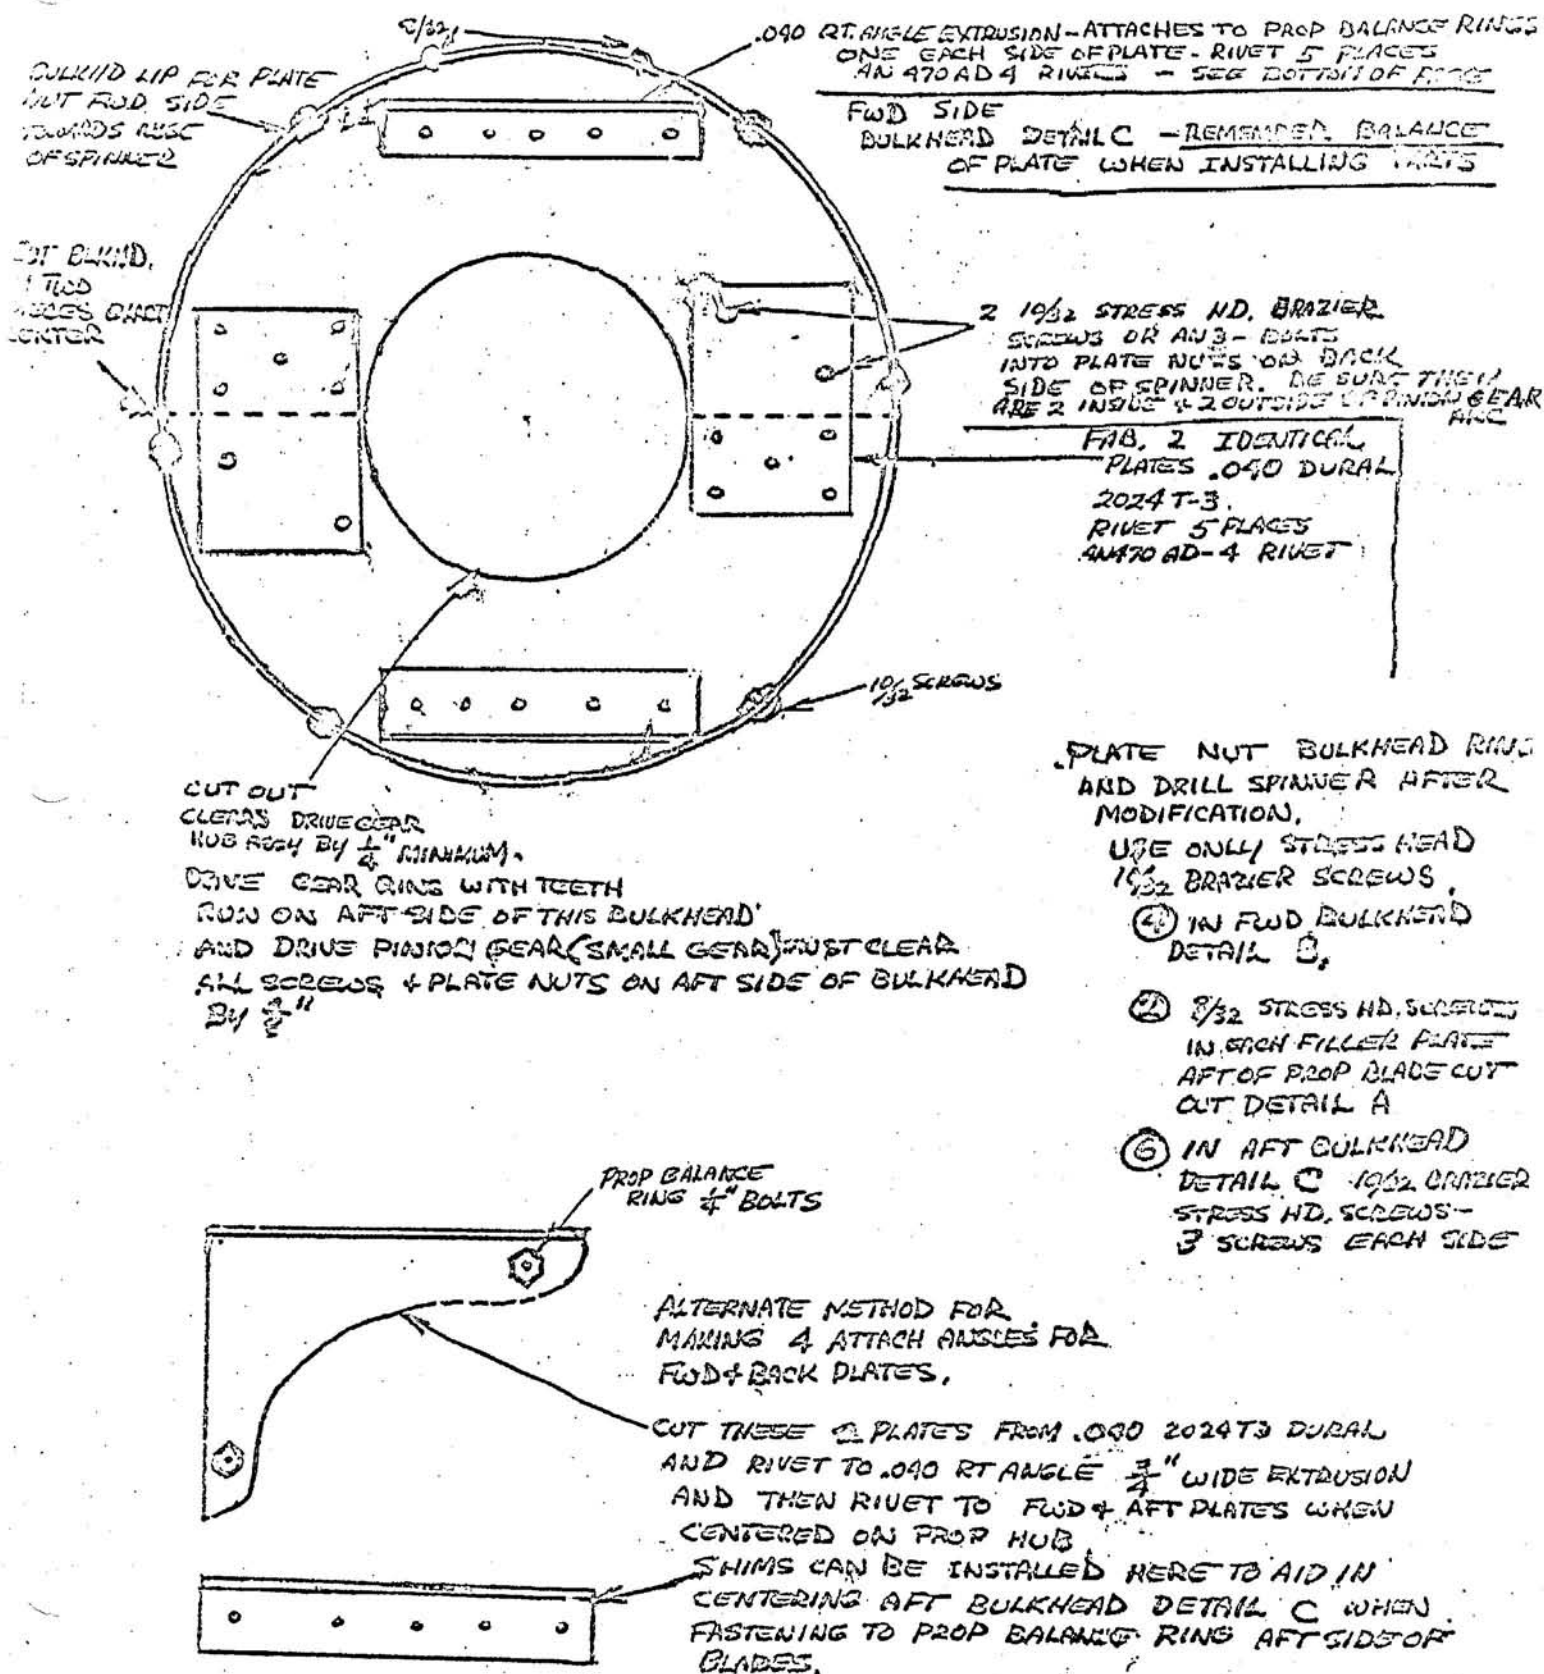 8/32
.040 RT. ANGLE EXTRUSION - ATTACHES TO PROP BALANCE RINGS
ONE EACH SIDE OF PLATE - RIVET 5 PLACES
AN 470 AD 4 RIVETS - SEE BOTTOM OF PAGE
BULKHD LIP FOR PLATE
NUT FWD. SIDE
TOWARDS NOSE
OF SPINNER
FWD SIDE
BULKHEAD DETAIL C - REMEMBER BALANCE
OF PLATE WHEN INSTALLING PARTS
BLKHD.
CENTER
2 10/32 STRESS HD. BRAZIER
SCREWS OR AN 3 - BOLTS
INTO PLATE NUTS ON BACK
SIDE OF SPINNER. BE SURE
ARE 2 INSIDE & 2 OUTSIDE OF PINION GEAR
ARC
FAB. 2 IDENTICAL
PLATES .040 DURAL
2024 T-3.
RIVET 5 PLACES
AN470 AD-4 RIVET
10/32 SCREWS
CUT OUT
CLEARS DRIVE GEAR
HUB ASSY BY 1/4" MINIMUM.
DRIVE GEAR RING WITH TEETH
RUN ON AFT SIDE OF THIS BULKHEAD
AND DRIVE PINION GEAR (SMALL GEAR) MUST CLEAR
ALL SCREWS & PLATE NUTS ON AFT SIDE OF BULKHEAD
BY
PLATE NUT BULKHEAD RING
AND DRILL SPINNER AFTER
MODIFICATION.
USE ONLY STRESS HEAD
10/32 BRAZIER SCREWS.
④ IN FWD BULKHEAD
DETAIL B.
② 8/32 STRESS HD. SCREWS
IN EACH FILLER PLATE
AFT OF PROP BLADE CUT
OUT DETAIL A
⑥ IN AFT BULKHEAD
DETAIL C 10/32 BRAZIER
STRESS HD. SCREWS -
3 SCREWS EACH SIDE
PROP BALANCE
RING 1/4" BOLTS
ALTERNATE METHOD FOR
MAKING 4 ATTACH ANGLES FOR
FWD & BACK PLATES.
CUT THESE 2 PLATES FROM .040 2024 T3 DURAL
AND RIVET TO .040 RT ANGLE 3/4" WIDE EXTRUSION
AND THEN RIVET TO FWD & AFT PLATES WHEN
CENTERED ON PROP HUB
SHIMS CAN BE INSTALLED HERE TO AID IN
CENTERING AFT BULKHEAD DETAIL C WHEN
FASTENING TO PROP BALANCE RING AFT SIDE OF
BLADES.